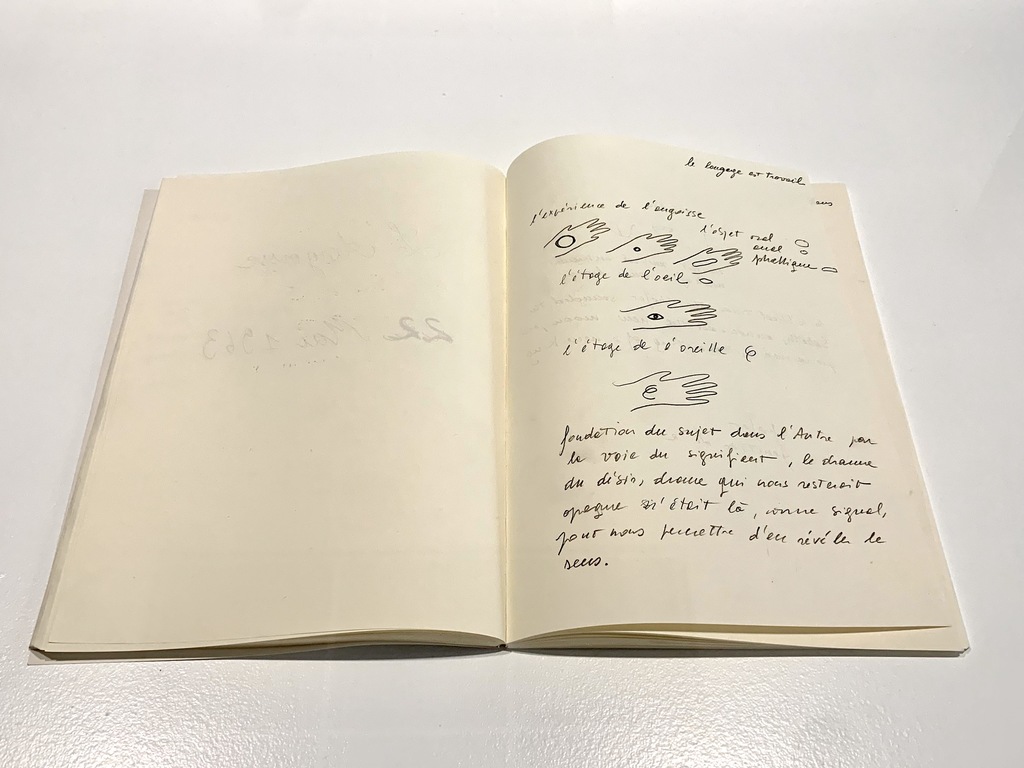 22 Mai 1963
le langage est travail
ans
l'expérience de l'angoisse
l'objet oral
anal
phallique
l'étage de l'oeil
l'étage de l'oreille
fondation du sujet dans l'Autre par
la voie du signifiant, le drame
du désir, drame qui nous resterait
opaque s'était là, comme signal,
pour nous permettre d'en révéler le
sens.